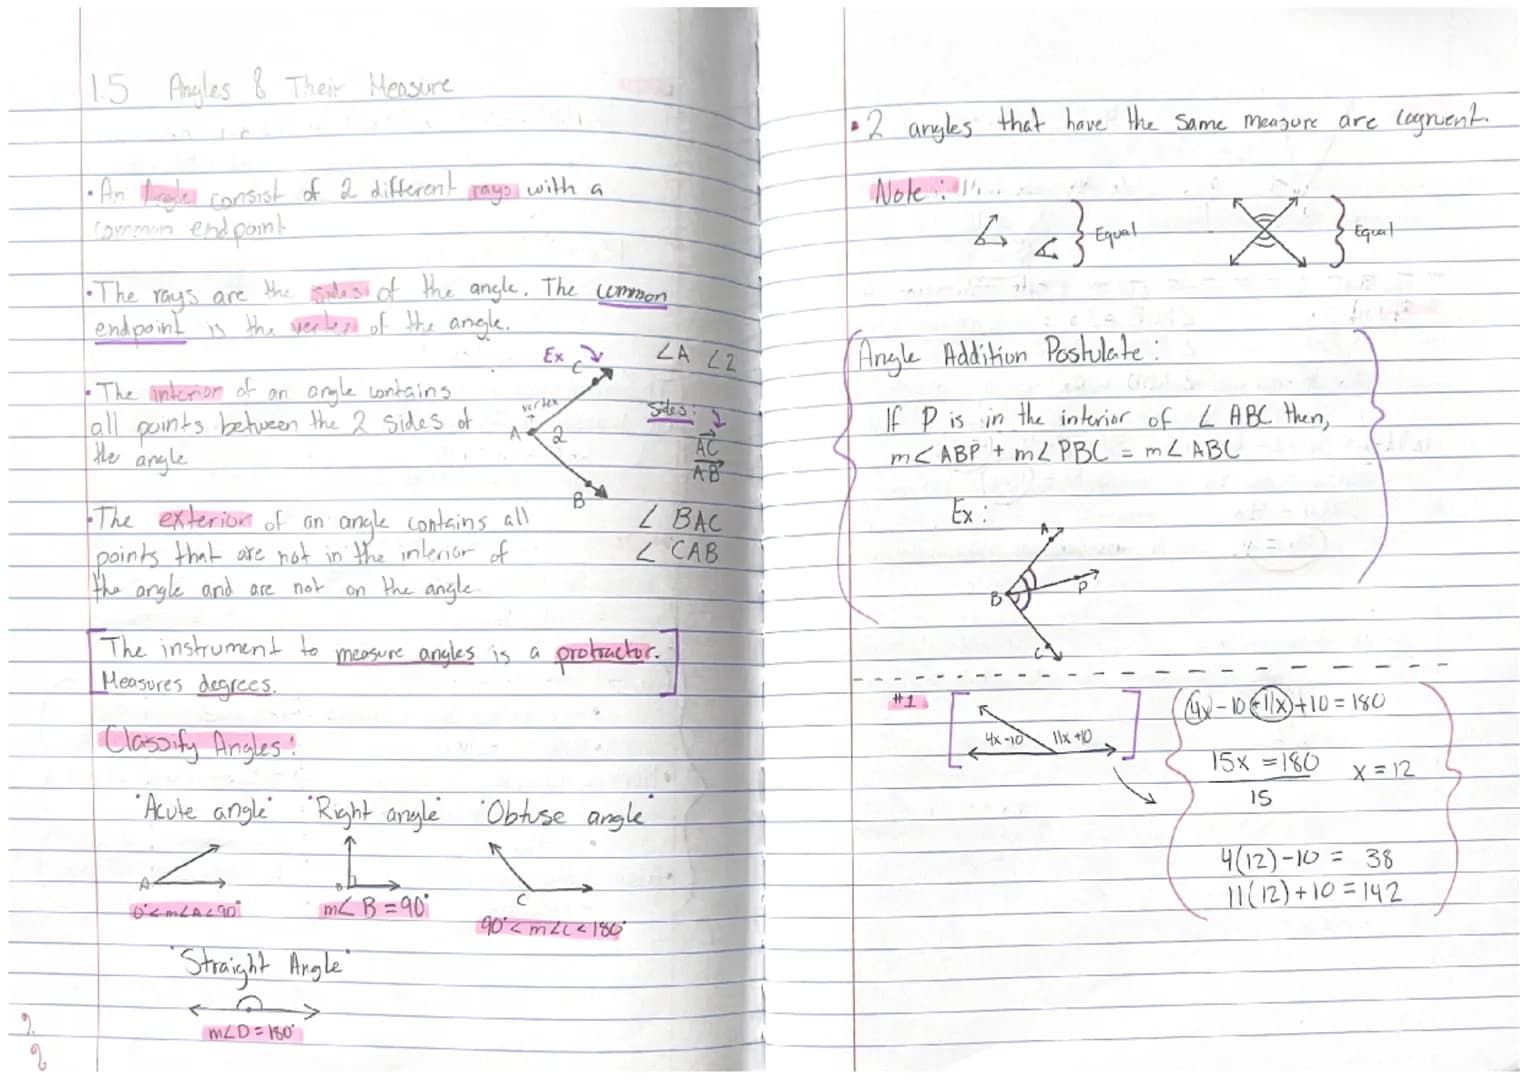 1.5 Angles & Their Measure
• An Angle consist of 2 different rays with a
common endpoint
• The rays are the sides of the angle. The common
endpoint is the vertex of the angle.
• The interior of an angle contains
all points between the 2 sides of
the angle
Ex
C
vertex
A 2
B
∠A ∠2
Sides:
AC
AB
∠ BAC
∠ CAB
• The exterior of an angle contains all
points that are not in the interior of
the angle and are not on the angle.
The instrument to measure angles is a protractor.
Measures degrees.
Classify Angles:
"Acute angle" "Right angle" "Obtuse angle"
A B C
0°<m∠A<90° m∠B=90° 90°<m∠C<180°
"Straight Angle"
m∠D=180°
• 2 angles that have the same measure are cogruent.
Note:
Equal Equal
Angle Addition Postulate:
If P is in the interior of ∠ ABC then,
m<ABP + m∠PBC = m∠ABC
Ex:
A
B P
C
#1
4x-10 11x+10
4x-10+11x+10=180
15x=180 x=12
15
4(12)-10= 38
11(12)+10=142